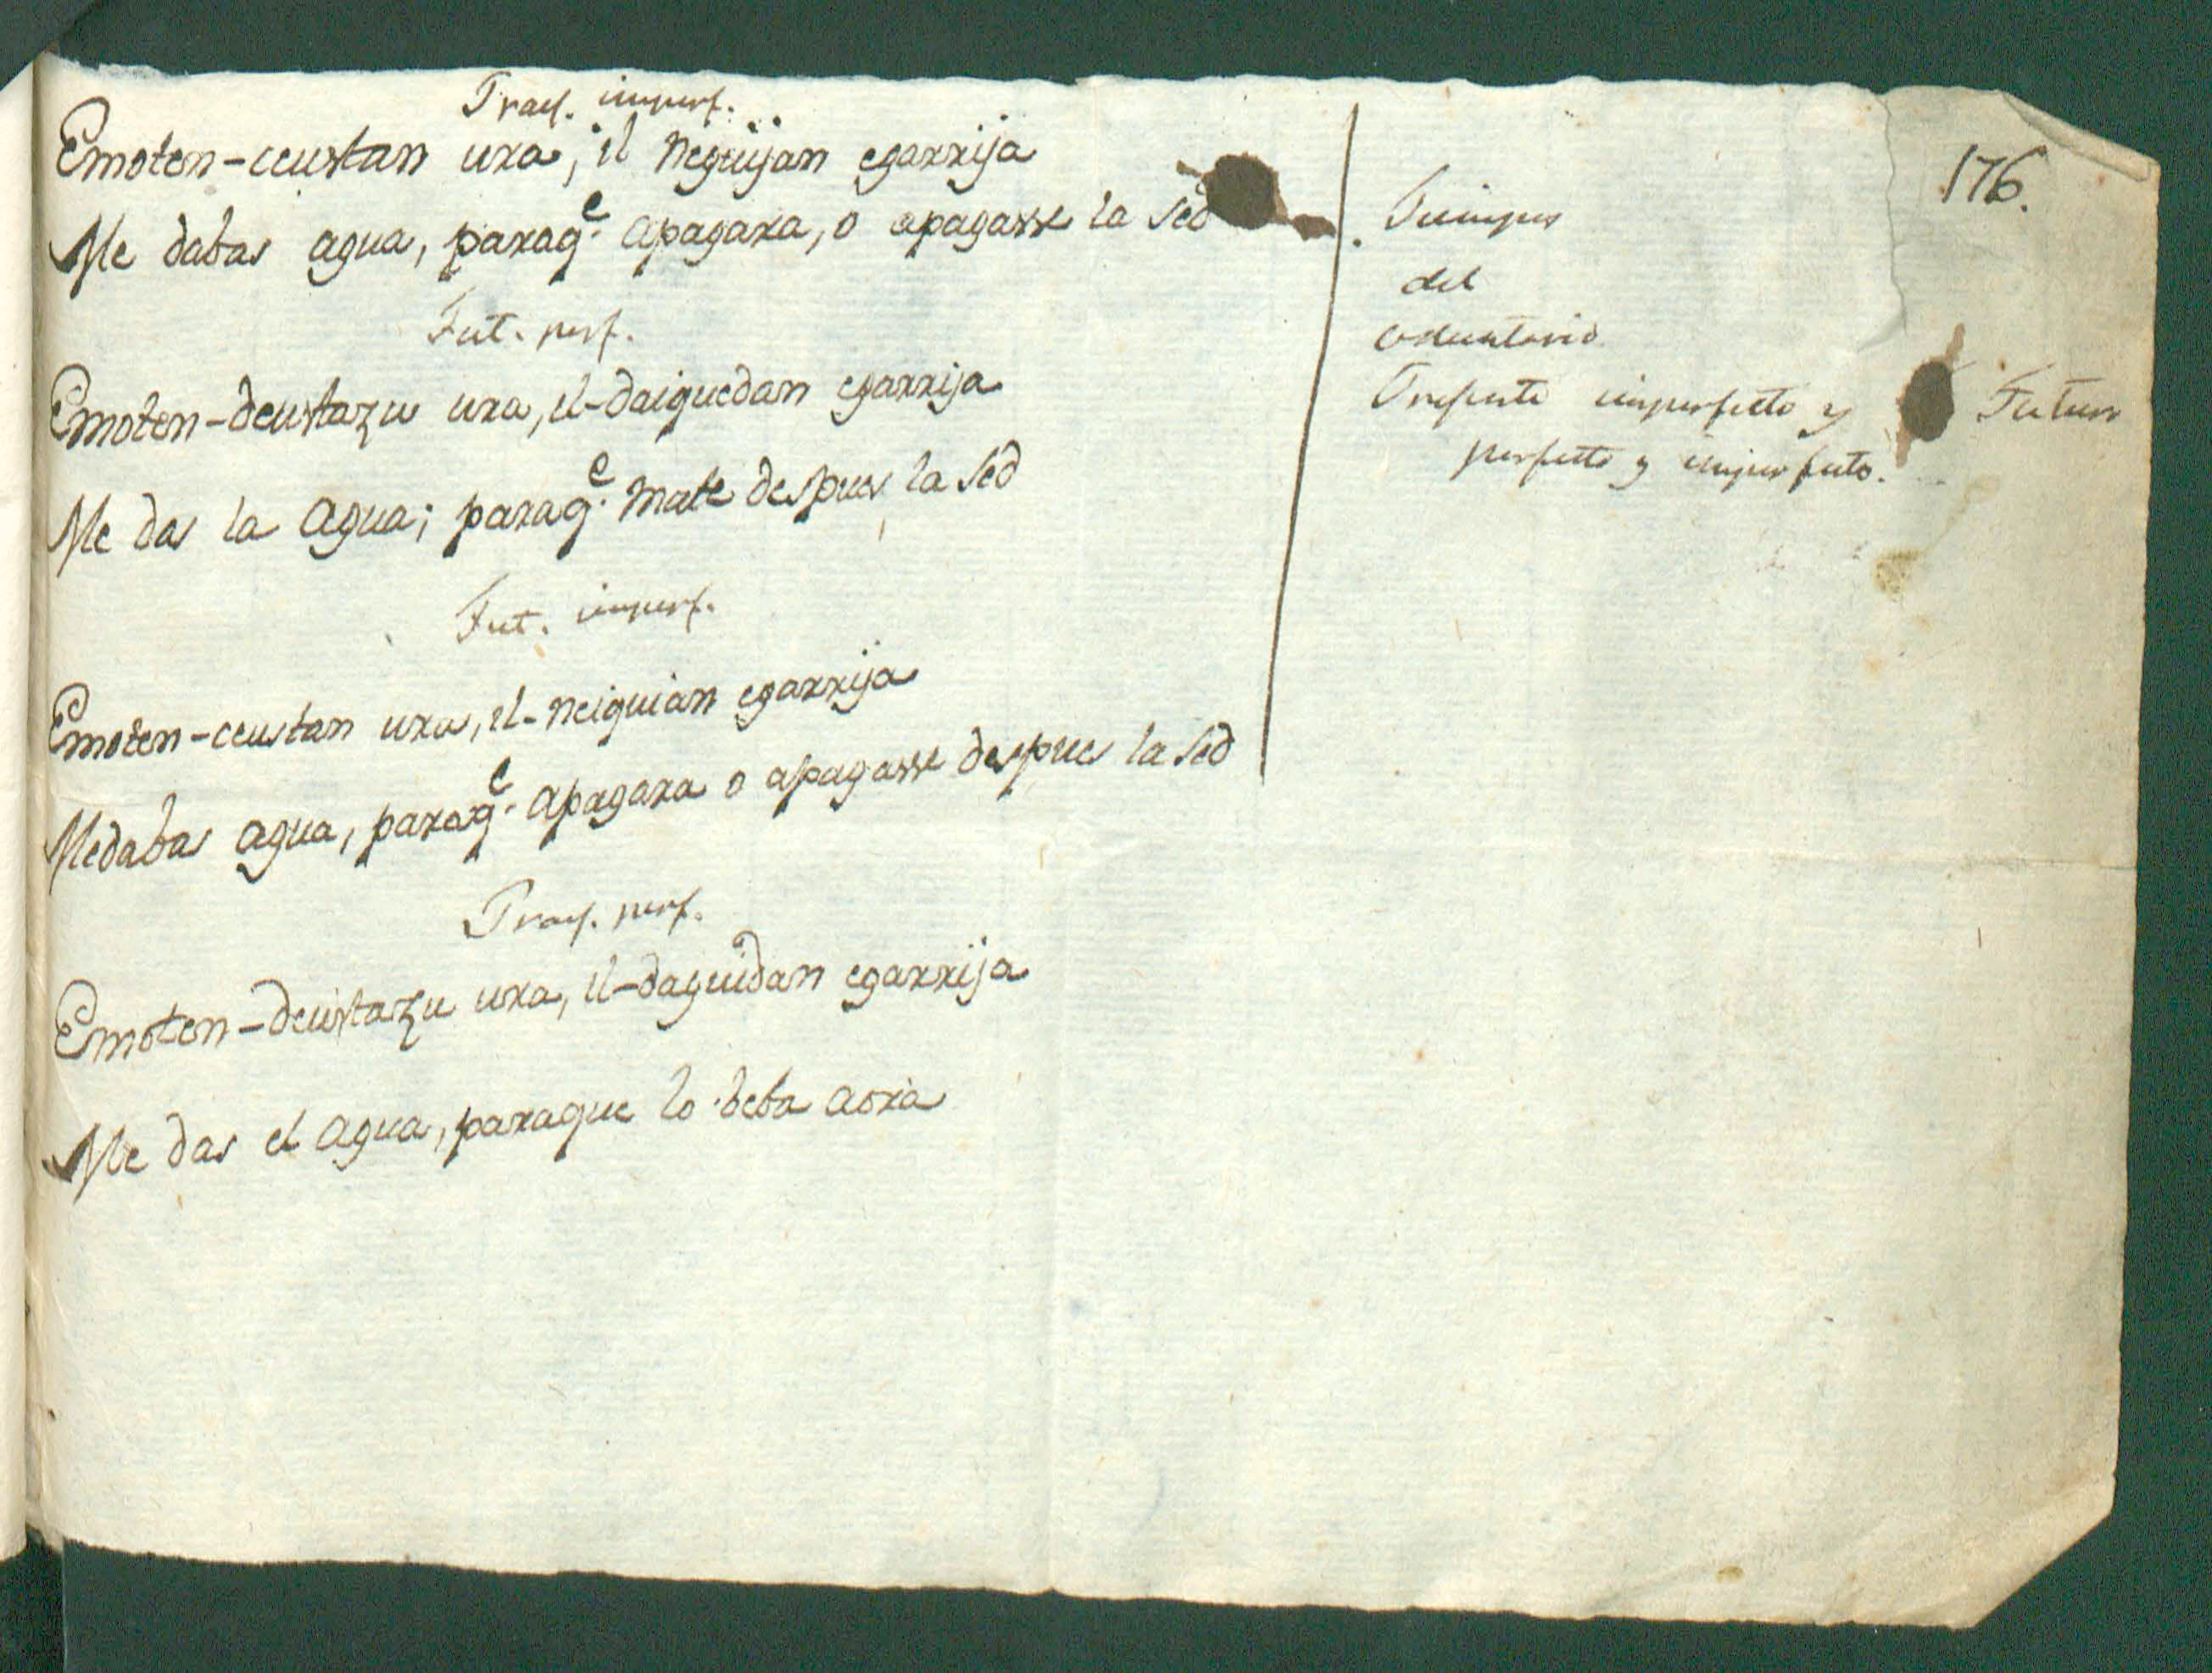 176.
Praes. imperf.
Emoten-ceustan ura, il neguijan egarrija
Me dabas agua, paraq.e apagara, o apagasse la sed
Fut. perf.
Emoten-deustazu ura, il-daiguedan egarrija
Me das la agua; paraq.e mate despues la sed
Fut. imperf.
Emoten-ceustan ura, il-neiguian egarrija
Me dabas agua, paraq.e apagara o apagasse despues la sed
Praes. perf.
Emoten-deustazu ura, il-daguidan egarrija
Me das el agua, paraque lo beba aora
Tiempos
del
voluntario
Presente imperfecto y Futuro
perfecto y imperfecto.